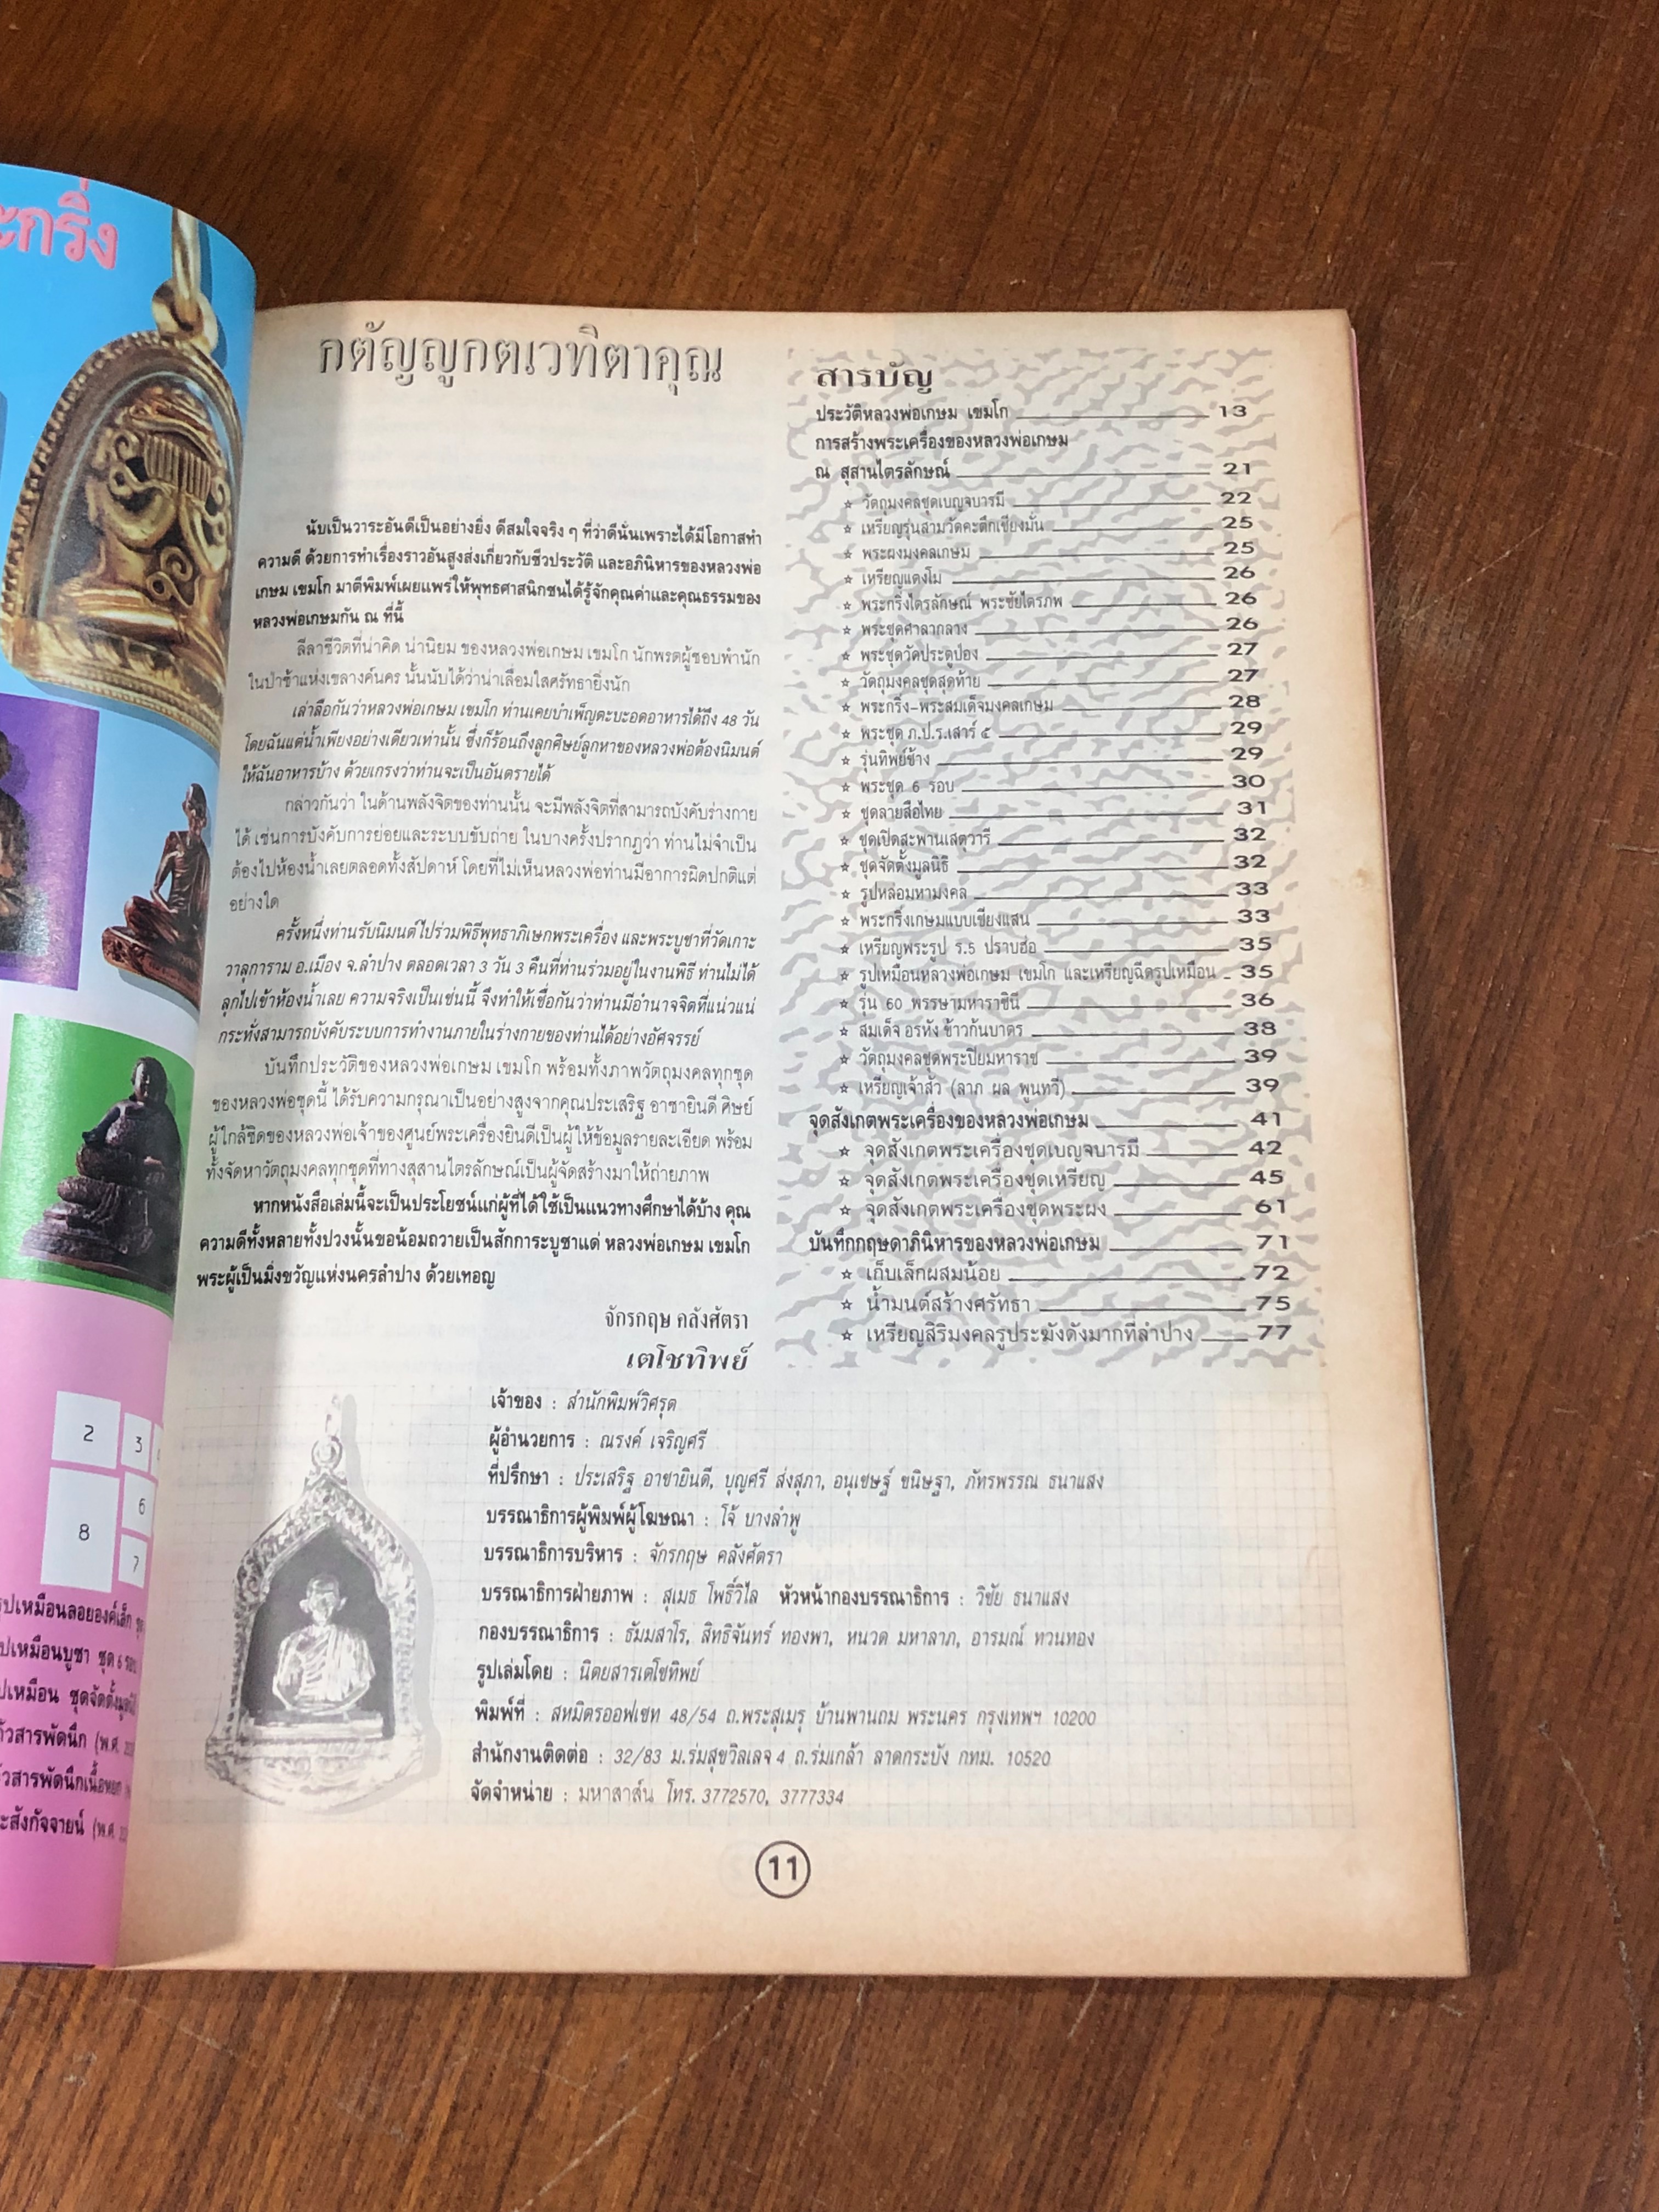 ะกริ่ง
2
3
6
8
7
รูปเหมือนลอยองค์เล็ก
ปเหมือนบูชา ชุด ๖ รอบ
ปเหมือน ชุดจัดตั้งมูลนิ
วสารพัดนึก (พ.ศ.
วสารพัดนึกเนื้อหยก
ะสังกัจจายน์ (พ.ศ.
กตัญญูกตเวทิตาคุณ
นับเป็นวาระอันดีเป็นอย่างยิ่ง ดีสมใจจริง ๆ ที่ว่าดีนั่นเพราะได้มีโอกาสทำ
ความดี ด้วยการทำเรื่องราวอันสูงส่งเกี่ยวกับชีวประวัติ และอภินิหารของหลวงพ่อ
เกษม เขมโก มาตีพิมพ์เผยแพร่ให้พุทธศาสนิกชนได้รู้จักคุณค่าและคุณธรรมของ
หลวงพ่อเกษมกัน ณ ที่นี้
ลีลาชีวิตที่น่าคิด น่านิยม ของหลวงพ่อเกษม เขมโก นักพรตผู้ชอบพำนัก
ในป่าช้าแห่งเขลางค์นคร นั้นนับได้ว่าน่าเลื่อมใสศรัทธายิ่งนัก
เล่าลือกันว่าหลวงพ่อเกษม เขมโก ท่านเคยบำเพ็ญตะบะอดอาหารได้ถึง 48 วัน
โดยฉันแต่น้ำเพียงอย่างเดียวเท่านั้น ซึ่งก็ร้อนถึงลูกศิษย์ลูกหาของหลวงพ่อต้องนิมนต์
ให้ฉันอาหารบ้าง ด้วยเกรงว่าท่านจะเป็นอันตรายได้
กล่าวกันว่า ในด้านพลังจิตของท่านนั้น จะมีพลังจิตที่สามารถบังคับร่างกาย
ได้ เช่นการบังคับการย่อยและระบบขับถ่าย ในบางครั้งปรากฏว่า ท่านไม่จำเป็น
ต้องไปห้องน้ำเลยตลอดทั้งสัปดาห์ โดยที่ไม่เห็นหลวงพ่อท่านมีอาการผิดปกติแต่
อย่างใด
ครั้งหนึ่งท่านรับนิมนต์ไปร่วมพิธีพุทธาภิเษกพระเครื่อง และพระบูชาที่วัดเกาะ
วาลุการาม อ.เมือง จ.ลำปาง ตลอดเวลา 3 วัน 3 คืนที่ท่านร่วมอยู่ในงานพิธี ท่านไม่ได้
ลุกไปเข้าห้องน้ำเลย ความจริงเป็นเช่นนี้ จึงทำให้เชื่อกันว่าท่านมีอำนาจจิตที่แน่วแน่
กระทั่งสามารถบังคับระบบการทำงานภายในร่างกายของท่านได้อย่างอัศจรรย์
บันทึกประวัติของหลวงพ่อเกษม เขมโก พร้อมทั้งภาพวัตถุมงคลทุกชุด
ของหลวงพ่อชุดนี้ ได้รับความกรุณาเป็นอย่างสูงจากคุณประเสริฐ อาชายินดี ศิษย์
ผู้ใกล้ชิดของหลวงพ่อเจ้าของศูนย์พระเครื่องยินดีเป็นผู้ให้ข้อมูลรายละเอียด พร้อม
ทั้งจัดหาวัตถุมงคลทุกชุดที่ทางสุสานไตรลักษณ์เป็นผู้จัดสร้างมาให้ถ่ายภาพ
หากหนังสือเล่มนี้จะเป็นประโยชน์แก่ผู้ที่ได้ใช้เป็นแนวทางศึกษาได้บ้าง คุณ
ความดีทั้งหลายทั้งปวงนั้นขอน้อมถวายเป็นสักการะบูชาแด่ หลวงพ่อเกษม เขมโก
พระผู้เป็นมิ่งขวัญแห่งนครลำปาง ด้วยเทอญ
จักรกฤษ คลังศัตรา
เตโชทิพย์
สารบัญ
ประวัติหลวงพ่อเกษม เขมโก 13
การสร้างพระเครื่องของหลวงพ่อเกษม
ณ สุสานไตรลักษณ์ 21
☆ วัตถุมงคลชุดเบญจบารมี 22
☆ เหรียญรุ่นสามวัดคะตึกเชียงมั่น 25
☆ พระผงมงคลเกษม 25
☆ เหรียญแตงโม 26
☆ พระกริ่งไตรลักษณ์ พระชัยไตรภพ 26
☆ พระชุดศาลากลาง 26
☆ พระชุดวัดประตูป่อง 27
☆ วัตถุมงคลชุดสุดท้าย 27
☆ พระกริ่ง-พระสมเด็จมงคลเกษม 28
☆ พระชุด ภ.ป.ร.เสาร์ ๕ 29
☆ รุ่นทิพย์ช้าง 29
☆ พระชุด 6 รอบ 30
☆ ชุดลายสือไทย 31
☆ ชุดเปิดสะพานเสตุวารี 32
☆ ชุดจัดตั้งมูลนิธิ 32
☆ รูปหล่อมหามงคล 33
☆ พระกริ่งเกษมแบบเชียงแสน 33
☆ เหรียญพระรูป ร.5 ปราบฮ่อ 35
☆ รูปเหมือนหลวงพ่อเกษม เขมโก และเหรียญฉีดรูปเหมือน 35
☆ รุ่น 60 พรรษามหาราชินี 36
☆ สมเด็จ อรหัง ข้าวก้นบาตร 38
☆ วัตถุมงคลชุดพระปิยมหาราช 39
☆ เหรียญเจ้าสัว (ลาภ ผล พูนทวี) 39
จุดสังเกตพระเครื่องของหลวงพ่อเกษม 41
☆ จุดสังเกตพระเครื่องชุดเบญจบารมี 42
☆ จุดสังเกตพระเครื่องชุดเหรียญ 45
☆ จุดสังเกตพระเครื่องชุดพระผง 61
บันทึกกฤษดาภินิหารของหลวงพ่อเกษม 71
☆ เก็บเล็กผสมน้อย 72
☆ น้ำมนต์สร้างศรัทธา 75
☆ เหรียญสิริมงคลรูประฆังดังมากที่ลำปาง 77
เจ้าของ : สำนักพิมพ์วิศรุต
ผู้อำนวยการ : ณรงค์ เจริญศรี
ที่ปรึกษา : ประเสริฐ อาชายินดี, บุญศรี ส่งสุภา, อนุเชษฐ์ ขนิษฐา, ภัทรพรรณ ธนาแสง
บรรณาธิการผู้พิมพ์ผู้โฆษณา : โจ้ บางลำพู
บรรณาธิการบริหาร : จักรกฤษ คลังศัตรา
บรรณาธิการฝ่ายภาพ : สุเมธ โพธิ์วิไล หัวหน้ากองบรรณาธิการ : วิชัย ธนาแสง
กองบรรณาธิการ : ธัมมสาโร, สิทธิจันทร์ ทองพา, หนวด มหาลาภ, อารมณ์ ทวนทอง
รูปเล่มโดย : นิตยสารเตโชทิพย์
พิมพ์ที่ : สหมิตรออฟเซท 48/54 ถ.พระสุเมรุ บ้านพานถม พระนคร กรุงเทพฯ 10200
สำนักงานติดต่อ : 32/83 ม.ร่มสุขวิลเลจ 4 ถ.ร่มเกล้า ลาดกระบัง กทม. 10520
จัดจำหน่าย : มหาสาส์น โทร. 3772570, 3777334
11